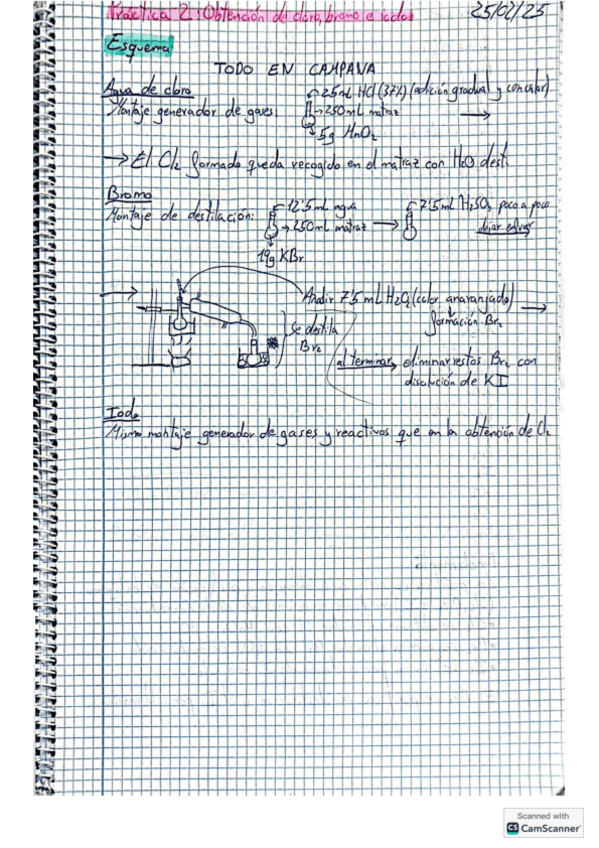 Práctica 2: Obtención de cloro, bromo e iodo 25/02/25
Esquema
TODO EN CAMPANA
Agua de cloro
Montaje generador de gases: 25mL HCl (37%) (adición gradual y con calor)
→ 250mL matraz →
5g MnO2
→ El Cl2 formado queda recogido en el matraz con H2O dest.
Bromo
Montaje de destilación: 12'5mL agua → 7'5mL H2SO4 poco a poco
→ 250mL matraz dejar enfriar
19g KBr
→ Añadir 7'5 mL H2O2 (color anaranjado) →
formación Br2
Se destila
Br2
al terminar, eliminar restos Br2 con
disolución de KI
Iodo
Mismo montaje generador de gases y reactivos que en la obtención de Cl2
Scanned with
CS CamScanner